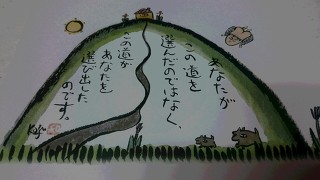 あなたが
この道を
選んだのではなく、
この道が
あなたを
選び出した
のです。